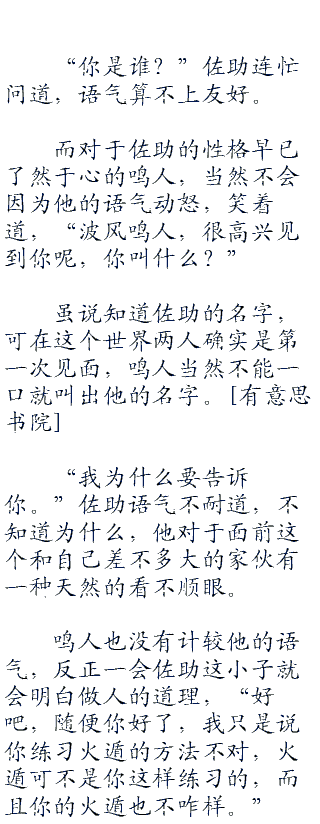 “你是谁？”佐助连忙
问道，语气算不上友好。
而对于佐助的性格早已
了然于心的鸣人，当然不会
因为他的语气动怒，笑着
道，“波风鸣人，很高兴见
到你呢，你叫什么？”
虽说知道佐助的名字，
可在这个世界两人确实是第
一次见面，鸣人当然不能一
口就叫出他的名字。[有意思
书院]
“我为什么要告诉
你。”佐助语气不耐道，不
知道为什么，他对于面前这
个和自己差不多大的家伙有
一种天然的看不顺眼。
鸣人也没有计较他的语
气，反正一会佐助这小子就
会明白做人的道理，“好
吧，随便你好了，我只是说
你练习火遁的方法不对，火
遁可不是你这样练习的，而
且你的火遁也不咋样。”